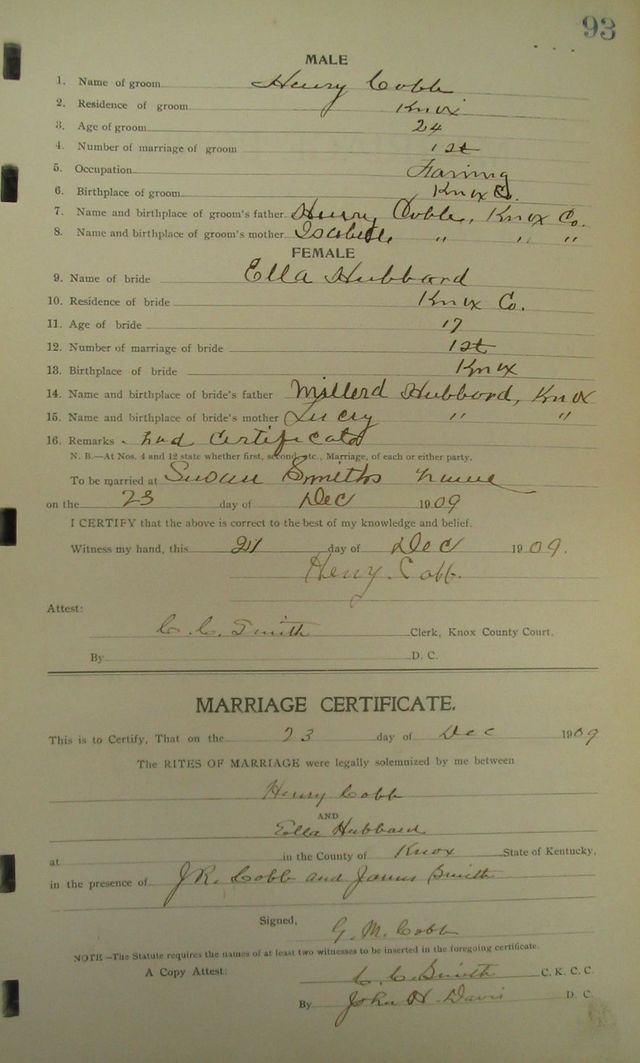 93
MALE
1. Name of groom Henry Cobb
2. Residence of groom Knox
3. Age of groom 24
4. Number of marriage of groom 1st
5. Occupation Farming
6. Birthplace of groom Knox Co.
7. Name and birthplace of groom's father Henry Cobb, Knox Co.
8. Name and birthplace of groom's mother Isabelle " " "
FEMALE
9. Name of bride Ella Hubbard
10. Residence of bride Knox Co.
11. Age of bride 17
12. Number of marriage of bride 1st
13. Birthplace of bride Knox
14. Name and birthplace of bride's father Millerd Hubbard, Knox
15. Name and birthplace of bride's mother Lucy " "
16. Remarks had certificate
N. B.—At Nos. 4 and 12 state whether first, second, etc., Marriage, of each or either party.
To be married at Susan Smiths
on the 23 day of Dec 1909
I CERTIFY that the above is correct to the best of my knowledge and belief.
Witness my hand, this 21 day of Dec 1909.
Heny. Cobb.
Attest:
C. C. Smith Clerk, Knox County Court.
By D. C.
MARRIAGE CERTIFICATE.
This is to Certify, That on the 23 day of Dec 1909
The RITES OF MARRIAGE were legally solemnized by me between
Henry Cobb
AND
Ella Hubbard
at in the County of Knox State of Kentucky,
in the presence of J.R. Cobb and James Smith
Signed, G. M. Cobb
NOTE—The Statute requires the names of at least two witnesses to be inserted in the foregoing certificate.
A Copy Attest: C. C. Smith C. K. C. C.
By John H. Davis D. C.